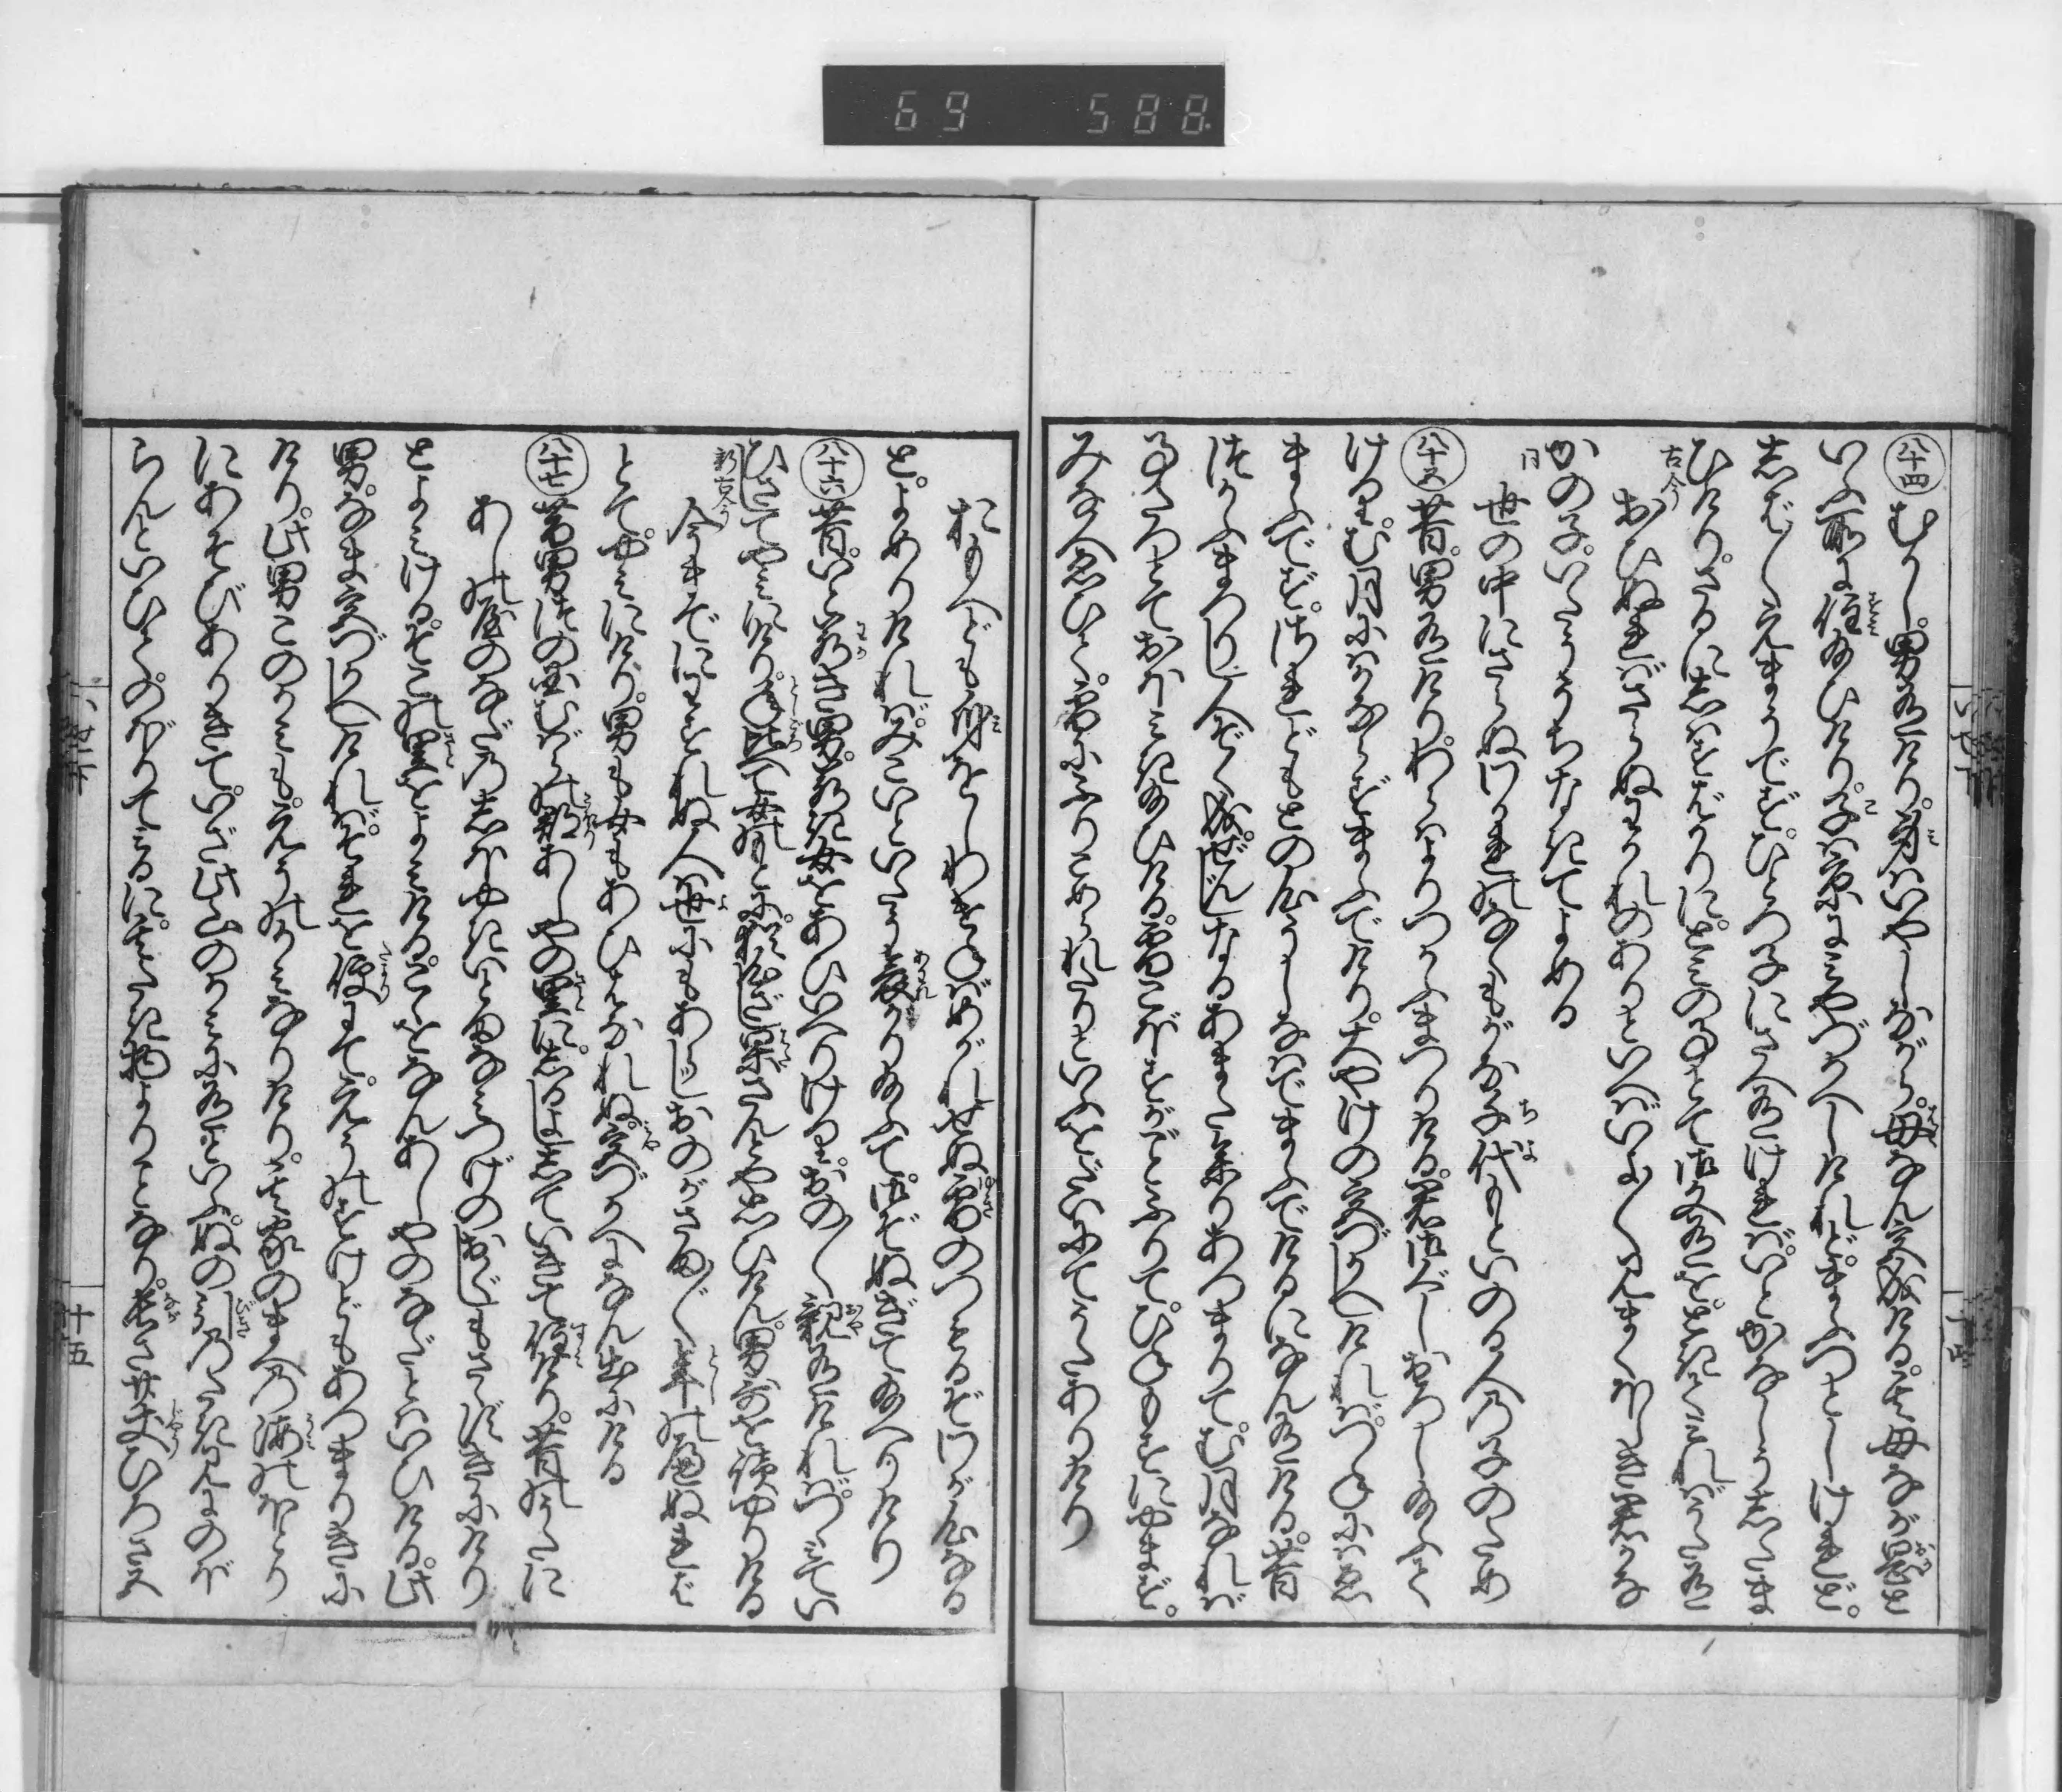 八十四 むかし。男有けり。身はいやしながら。母なん宮成ける。其母なが岡と
いふ所に住給ひけり。子は京に宮づかへしければ。まうづとしけれど。
しば〳〵えまうでず。ひとつ子にさへ有ければ。いとかなしうし給
ひけり。さるにしはすばかりに。とみの事とて御文有。おどろきてみればうた有
古今 おひぬればさらぬわかれのありといへばいよ〳〵見まくほしき君かな
かの子。いたううちなきてよめる
同 世の中にさらぬわかれのなくもがな千代もといのる人の子のため
八十五 昔。男有けり。わらはよりつかふまつりける君。御ぐしおろし給ふて
けり。む月にはかならずまうでけり。大やけの宮づかへしければ。つねにはえ
まうでず。されどもとの心うしなはでまうでけるになん有ける。昔
つかふまつりし人。ぞく成。ぜんじなるあまた参りあつまりて。む月なれば
事たつとておほみき給ひけり。雪こぼすがごとふりて。ひねもすにやまず。
みな人ゑひて。雪にふりこめられたりといふをだいにてうたありけり
おもへども身をしわけねばめがれせぬ雪のつもるぞわが心なる
とよめりければ。みこいといたう哀がり給ふて。御ぞぬぎて給へりけり
八十六 昔。いとわかき男。わかき女をあひいへりけり。おの〳〵親有ければ。つゝみてい
ひさしてやみにけり。年比へて女のもとに。猶心ざし果さんとや思ひけん。男哥を読てやりける
新古今 今までにわすれぬ人は世にもあらじおのがさま〴〵年のへぬれば
とてやみにけり。男も女もあひはなれぬ宮づかへになん出にける
八十七 昔男津の国むばらの郡あしやの里に。しるよししていきて住けり。昔の哥に
あしの屋のなだのしほやきいとまなみつげのおぐしもさゝずきにけり
とよみける。ぞこの里をよみける。こゝをなんあしやのなだとはいひける。此
男。なま宮づかへしければ。それを便にて。ゑうのすけどもあつまりきに
けり。此男このかみも。ゑうのかみなりけり。其家のまへの海のほとり
にあそびありきて。いざ此山のかみに有といふ。ぬの引のたき見にのぼ
らんといひて。のぼりてみるに。其たき物よりことなり。長さ廿丈ひろさ五
十五